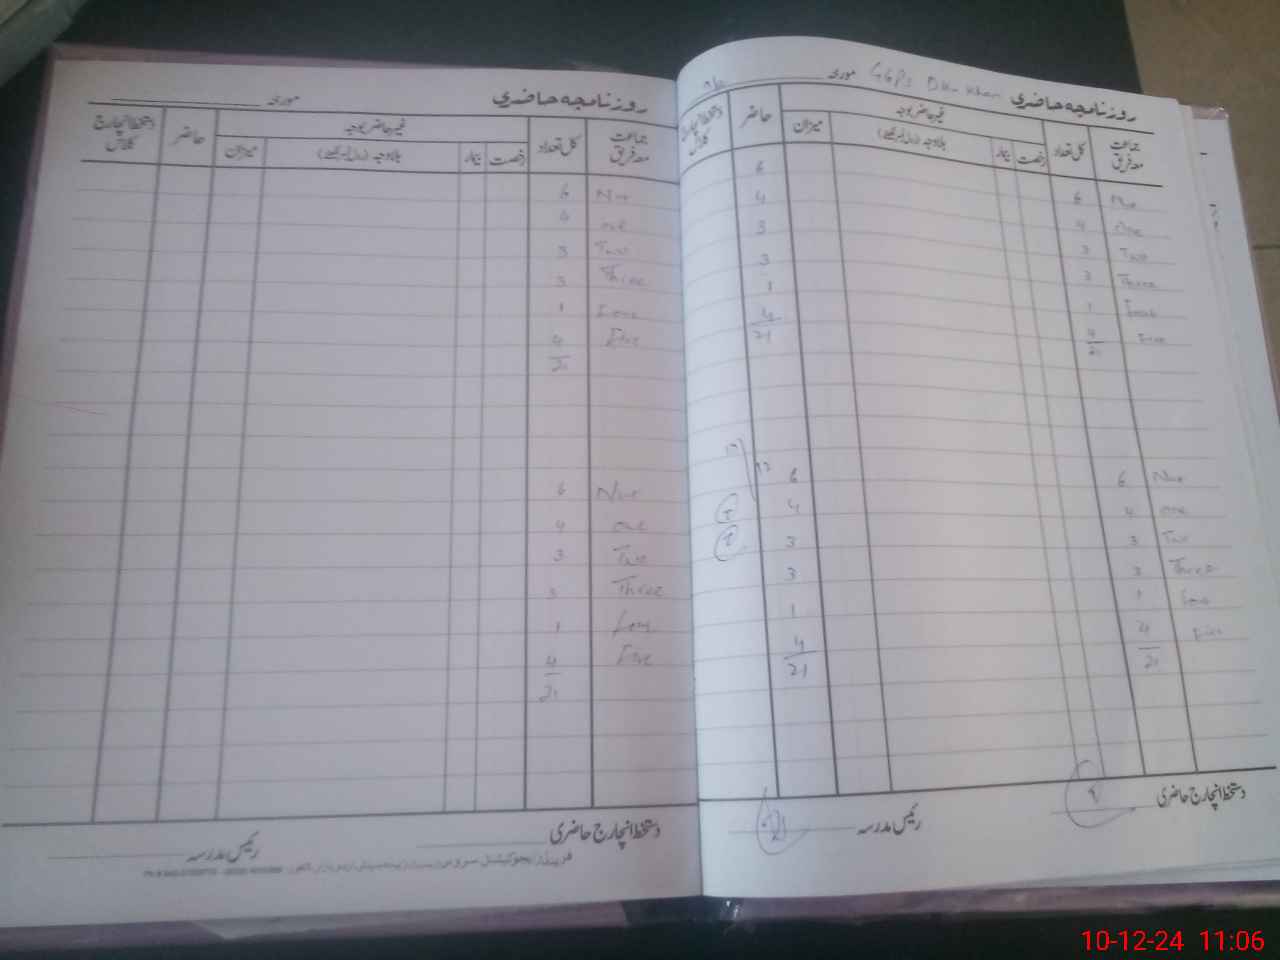 روزنامچہ حاضری GGPS Dhr Khan مورخہ
جماعت معہ فریق کل تعداد غیر حاضر بوجہ حاضر دستخط انچارج کلاس
رخصت بیمار بلاوجہ (رول نمبر لکھئے) میزان
Nur 6 6
one 4 4
Two 3 3
Three 3 3
Four 1 1
Five 4 4
21 21
Nur 6 6
one 4 4
Two 3 3
Three 3 3
Four 1 1
Five 4 4
21 21
دستخط انچارج حاضری رئیس مدرسہ
روزنامچہ حاضری مورخہ
جماعت معہ فریق کل تعداد غیر حاضر بوجہ حاضر دستخط انچارج کلاس
رخصت بیمار بلاوجہ (رول نمبر لکھئے) میزان
Nur 6
one 4
Two 3
Three 3
Four 1
Five 4
21
Nur 6
one 4
Two 3
Three 3
Four 1
Five 4
21
دستخط انچارج حاضری رئیس مدرسہ
10-12-24 11:06